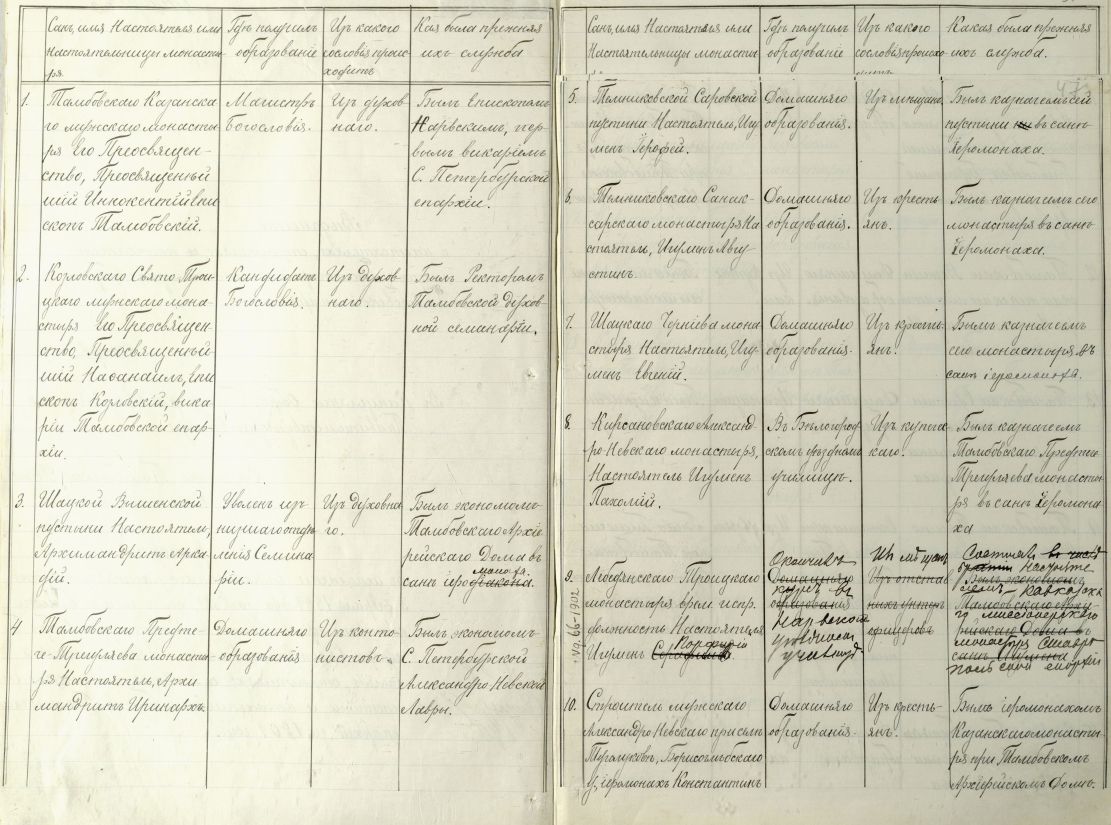 Санъ, имя Настоятеля или
Настоятельницы монасты-
ря.
Гдѣ получилъ
образованіе
Изъ какого
сословія проис-
ходитъ
Кая была прежняя
ихъ служба
1.
Тамбовскаго Казанска-
го мужскаго монасты-
ря Его Преосвящен-
ство, Преосвященнѣй-
шій Иннокентій Епи
скопъ Тамбовскій.
Магистръ
Богословія.
Изъ духов-
наго.
Былъ Епископомъ
Нарвскимъ, пер-
вымъ викаріемъ
С. Петербургской
епархіи.
2.
Козловскаго Свято-Трои-
цкаго мужскаго мона-
стыря Его Преосвящен-
ство, Преосвященнѣй-
шій Наѳанаилъ, Епи
скопъ Козловскій, вика-
рій Тамбовской епар-
хіи.
Кандидатъ
Богословія.
Изъ духов-
наго.
Былъ Ректоромъ
Тамбовской духов-
ной семинаріи.
3.
Шацкой Вышенской
пустыни Настоятель,
Архимандритъ Арка-
дій.
Уволенъ изъ
низшаго отдѣ-
ленія Семина-
ріи.
Изъ духовна-
го.
Былъ экономомъ
Тамбовскаго Архіе-
рейскаго Дома въ
санѣ іеродіакона.
монаха.
4
Тамбовскаго Предте-
че-Трегуляева монасты-
ря Настоятель, Архи-
мандритъ Иринархъ
Домашняго
образованія
Изъ канто-
нистовъ.
Былъ экономомъ
С. Петербургской
Александро-Невской
Лавры.
Санъ, имя Настоятеля или
Настоятельницы монасты-
Гдѣ получилъ
образованіе
Изъ какого
сословія происхо-
Какая была прежняя
ихъ служба.
5.
Темниковской Саровской
пустыни Настоятель, Игу-
менъ Іероѳей.
Домашняго
образованія.
Изъ мѣщанъ.
Былъ казначеемъ сей
пустыни въ санѣ
Іеромонаха.
6.
Темниковскаго Санак-
сарскаго монастыря На
стоятель, Игуменъ Авгу
стинъ.
Домашняго
образованія.
Изъ кресть-
янъ.
Былъ казначеемъ сего
монастыря въ санѣ
Іеромонаха.
7.
Шацкаго Чернѣева мона-
стыря Настоятель, Игу-
менъ Евгеній.
Домашняго
образованія.
Изъ кресть-
янъ.
Былъ казначеемъ
сего монастыря въ
санѣ іеромонаха.
8.
Кирсановскаго Александ-
ро-Невскаго монастыря,
Настоятель Игуменъ
Пахомій.
Въ Бѣлгород-
скомъ уѣздномъ
училищѣ.
Изъ купече-
скаго.
Былъ казначеемъ
Тамбовскаго Предтече
Трегуляева монасты-
ря въ санѣ Іеромона-
ха
9.
Лебедянскаго Троицкаго
монастыря врем. испр.
должность Настоятеля
Игуменъ Серафимъ
Порфирій
Окончилъ
Домашняго
курсъ въ
образованія
Нарвскомъ
училищѣ
Изъ мѣщанъ
Изъ отстав-
ныхъ унтеръ
офицеровъ
Состоялъ въ числѣ
братіи настояте
Былъ экономомъ
лемъ - кавказска
Тамбовскаго Архіе-
го миссіонерскаго
рейскаго Дома въ
монастыря Ставро
санѣ Игумена
польской епархіи
10.
Строитель мужскаго
Александро-Невскаго при сельѣ
Борисоглѣбскаго
у, іеромонахъ Константинъ
Домашняго
образованія.
Изъ кресть-
янъ.
Былъ іеромонахомъ
Казанскаго монасты-
ря при Тамбовскомъ
Архіерейскомъ Домѣ.